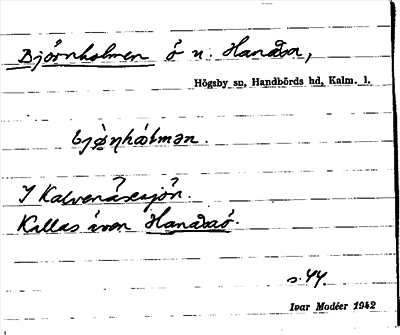 Björnholmen ö n. Hanåsa,
Högsby sn, Handbörds hd, Kalm. l.
bjö̀ṇhɷ́lmən.
I Kalvenässjön.
Kallas även Hanåsaö.
s. 44.
Ivar Modéer 1942